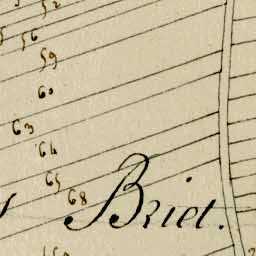 52
56
59
60
63
64
65
68
Briet.